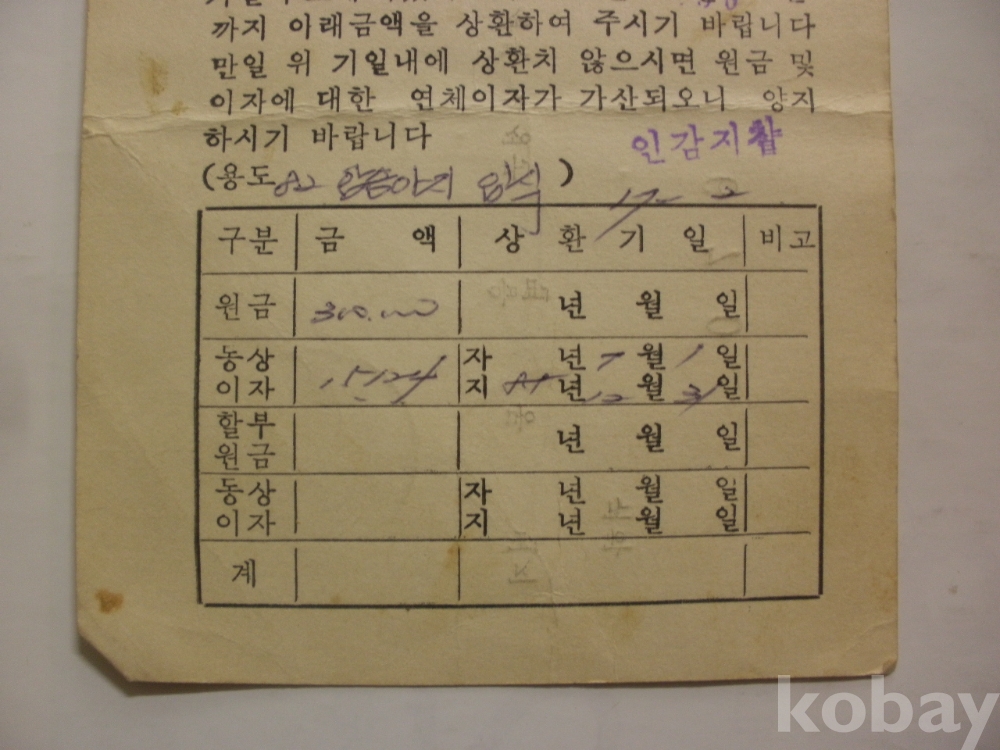 까지 아래금액을 상환하여 주시기 바랍니다
만일 위 기일내에 상환치 않으시면 원금 및
이자에 대한 연체이자가 가산되오니 양지
하시기 바랍니다
인감지참
(용도 )
구분 금 액 상 환 기 일 비고
원금 300,000 년 월 일
동상 이자 15124 자 년 7 월 1 일
지 년 12 월 31 일
할부 원금 년 월 일
동상 이자 자 년 월 일
지 년 월 일
계
kobay